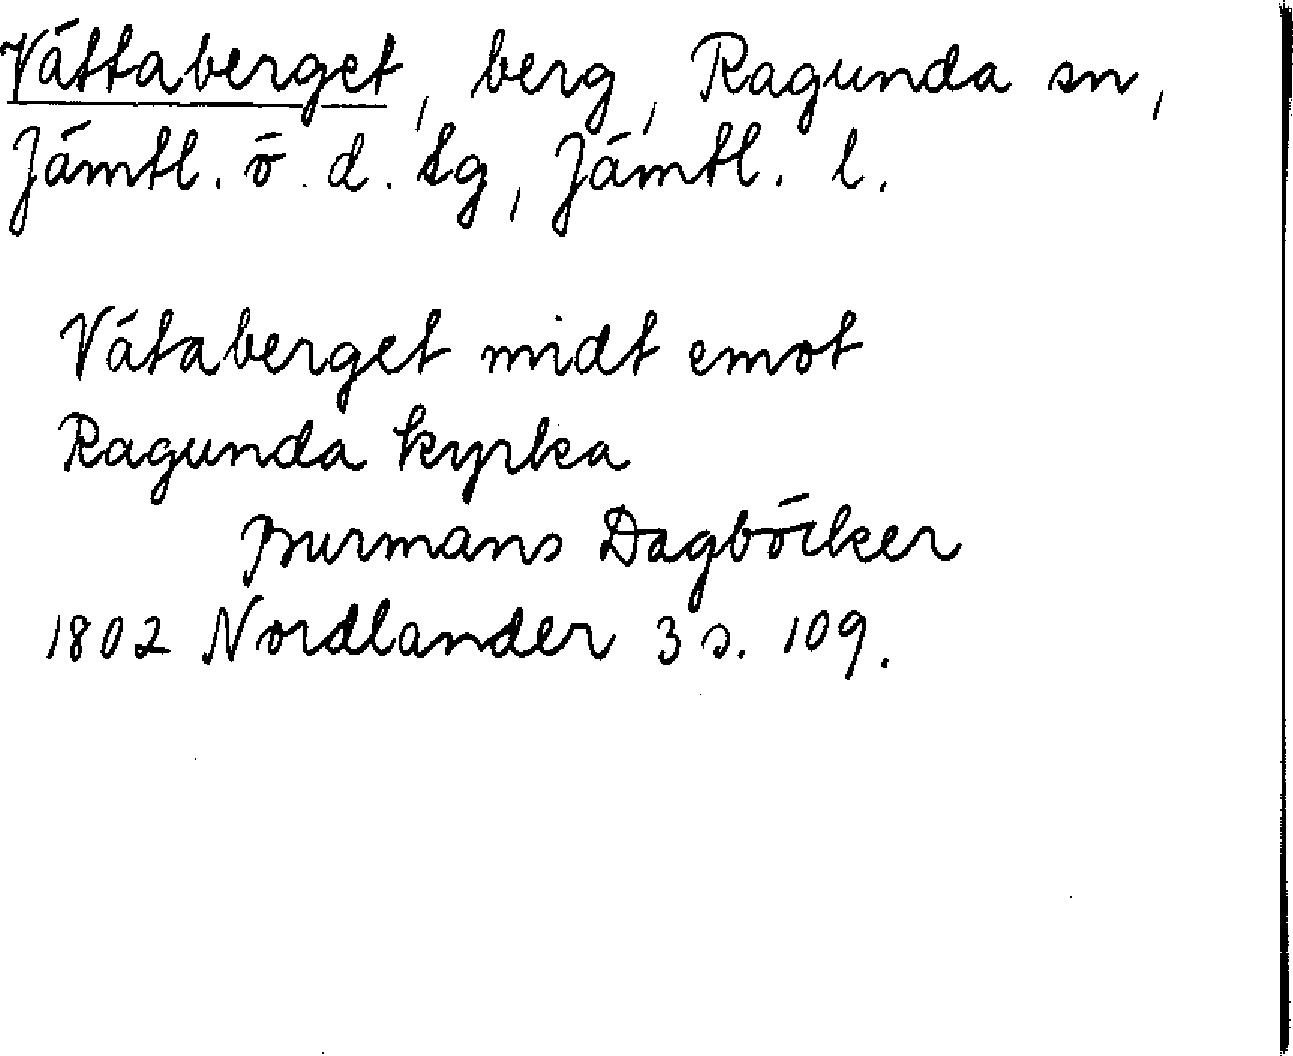 Vättaberget, berg, Ragunda sn,
Jämtl. ö. d. tg, Jämtl. l.
Vätaberget midt emot
Ragunda kyrka
Burmans Dagböcker
1802 Nordlander 3 s. 109.